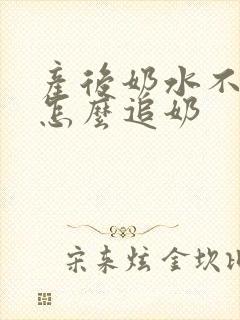 產後奶水不
怎麼追奶
宋來炫金坎比